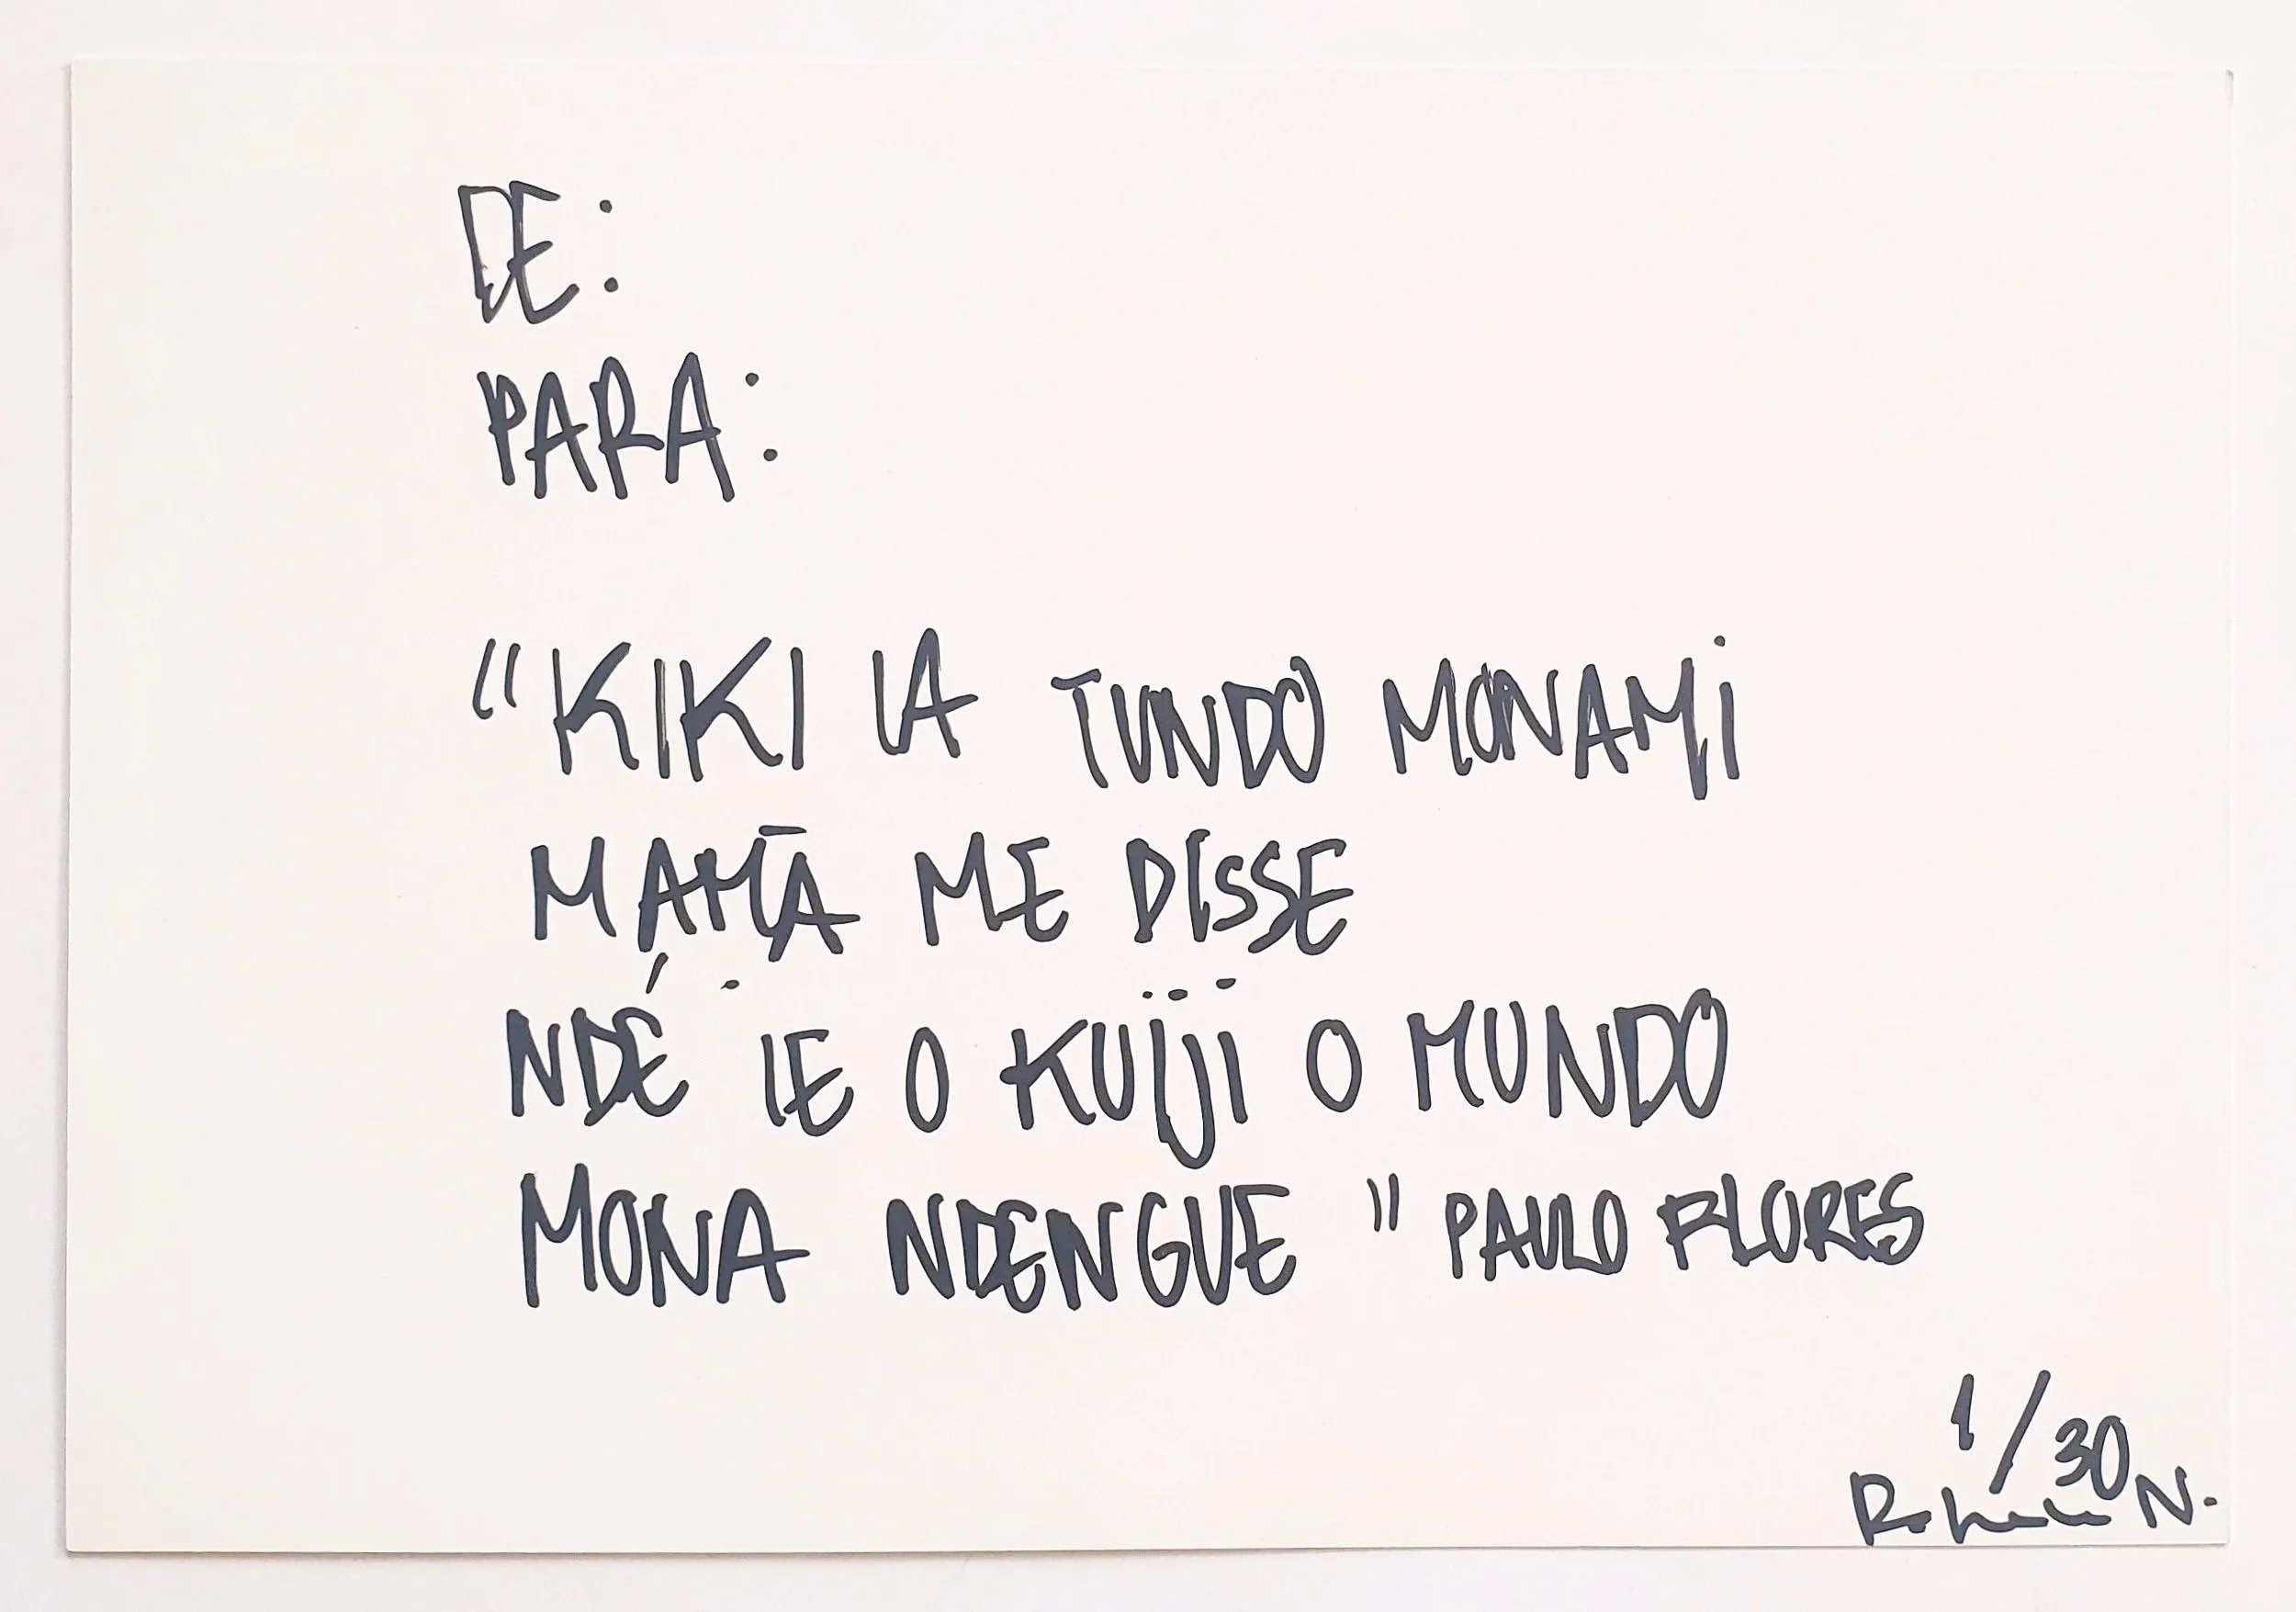 DE:
PARA:
"KIKI IA TUNDO MONAMI
MAMÃ ME DISSE
NDÉ IE O KUIJI O MUNDO
MONA NDENGUE" PAULO FLORES
1/30
N.